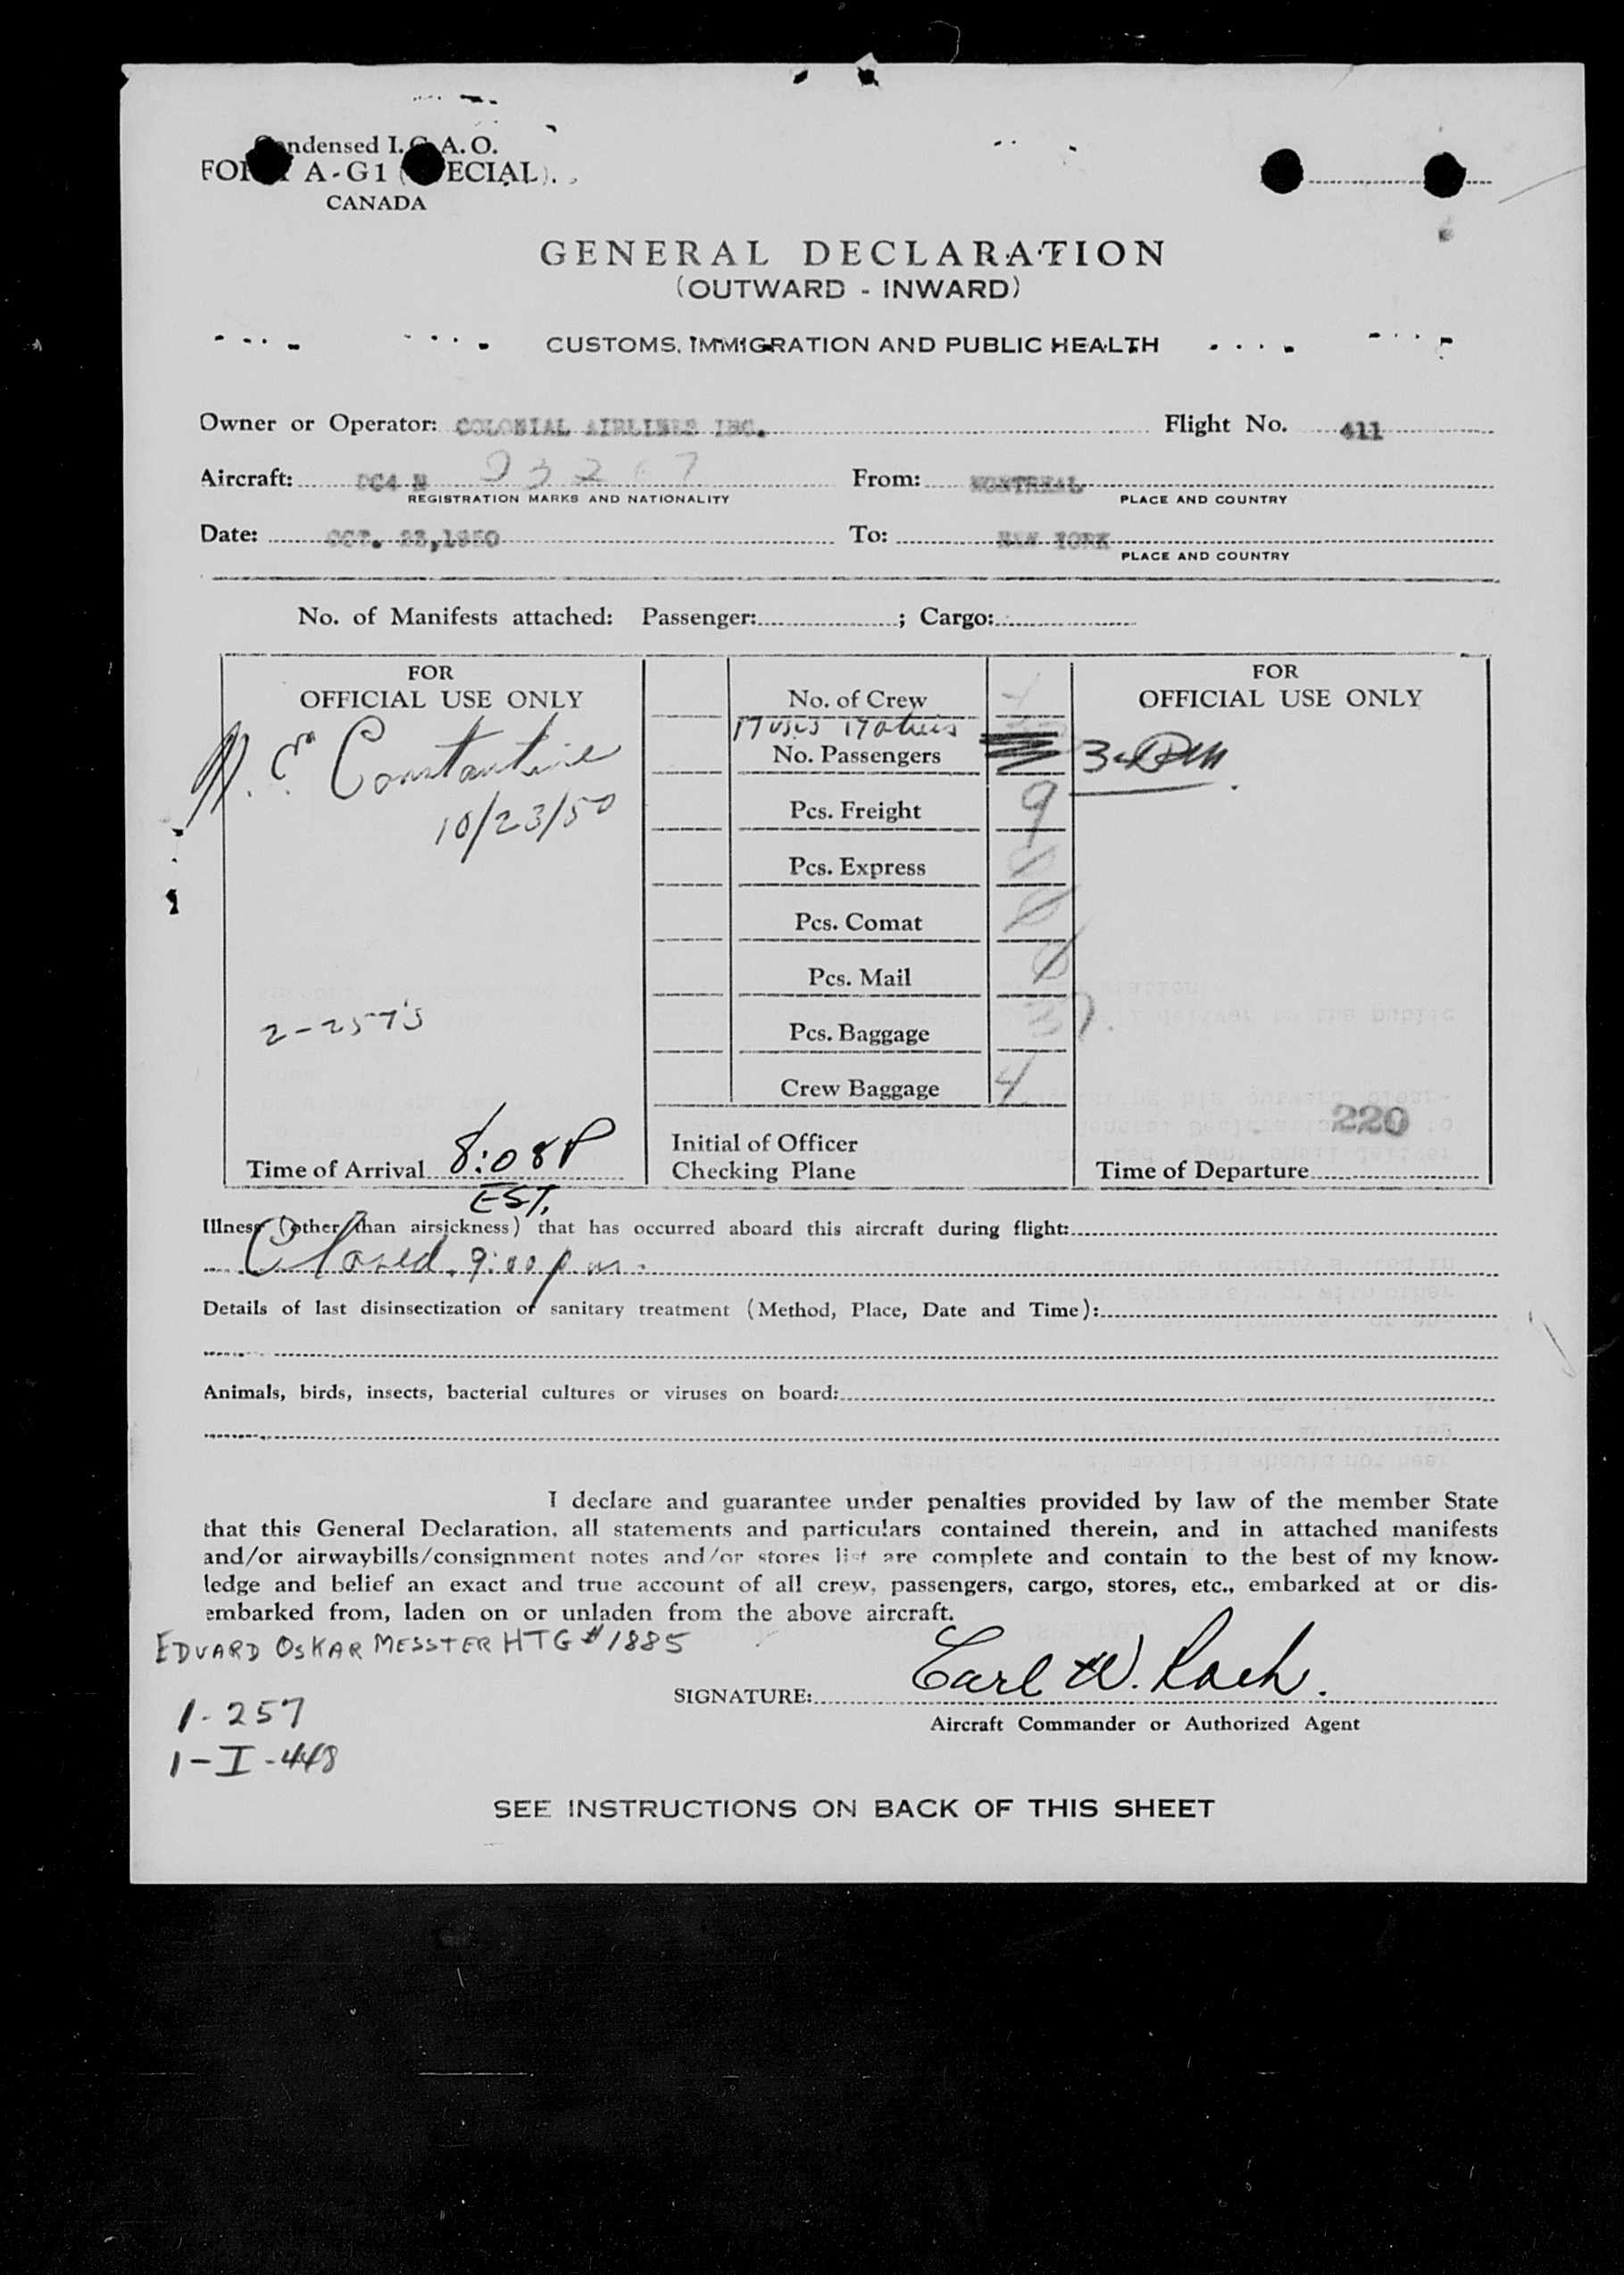 Condensed I.C.A.O.
FORM A-G1 (SPECIAL).
CANADA
GENERAL DECLARATION
(OUTWARD - INWARD)
CUSTOMS, IMMIGRATION AND PUBLIC HEALTH
Owner or Operator: COLONIAL AIRLINES INC. Flight No. 411
Aircraft: DC4 N 93267 From: MONTREAL
REGISTRATION MARKS AND NATIONALITY PLACE AND COUNTRY
Date: OCT. 23,1950 To: NEW YORK
PLACE AND COUNTRY
No. of Manifests attached: Passenger: ; Cargo:
FOR
OFFICIAL USE ONLY
Constantine
10/23/50
2-257's
Time of Arrival 8:08P
EST.
No. of Crew
17 USCS 17
No. Passengers
Pcs. Freight 9
Pcs. Express 0
Pcs. Comat 0
Pcs. Mail 0
Pcs. Baggage 37
Crew Baggage 4
Initial of Officer
Checking Plane
FOR
OFFICIAL USE ONLY
220
Time of Departure
Illness (other than airsickness) that has occurred aboard this aircraft during flight:
Closed. 9:00 p.m.
Details of last disinsectization or sanitary treatment (Method, Place, Date and Time):
Animals, birds, insects, bacterial cultures or viruses on board:
I declare and guarantee under penalties provided by law of the member State
that this General Declaration, all statements and particulars contained therein, and in attached manifests
and/or airwaybills/consignment notes and/or stores list are complete and contain to the best of my know-
ledge and belief an exact and true account of all crew, passengers, cargo, stores, etc., embarked at or dis-
embarked from, laden on or unladen from the above aircraft.
EDVARD OSKAR MESSTER HTG #1885
SIGNATURE: Earl W. Roch.
Aircraft Commander or Authorized Agent
1-257
1-I-448
SEE INSTRUCTIONS ON BACK OF THIS SHEET